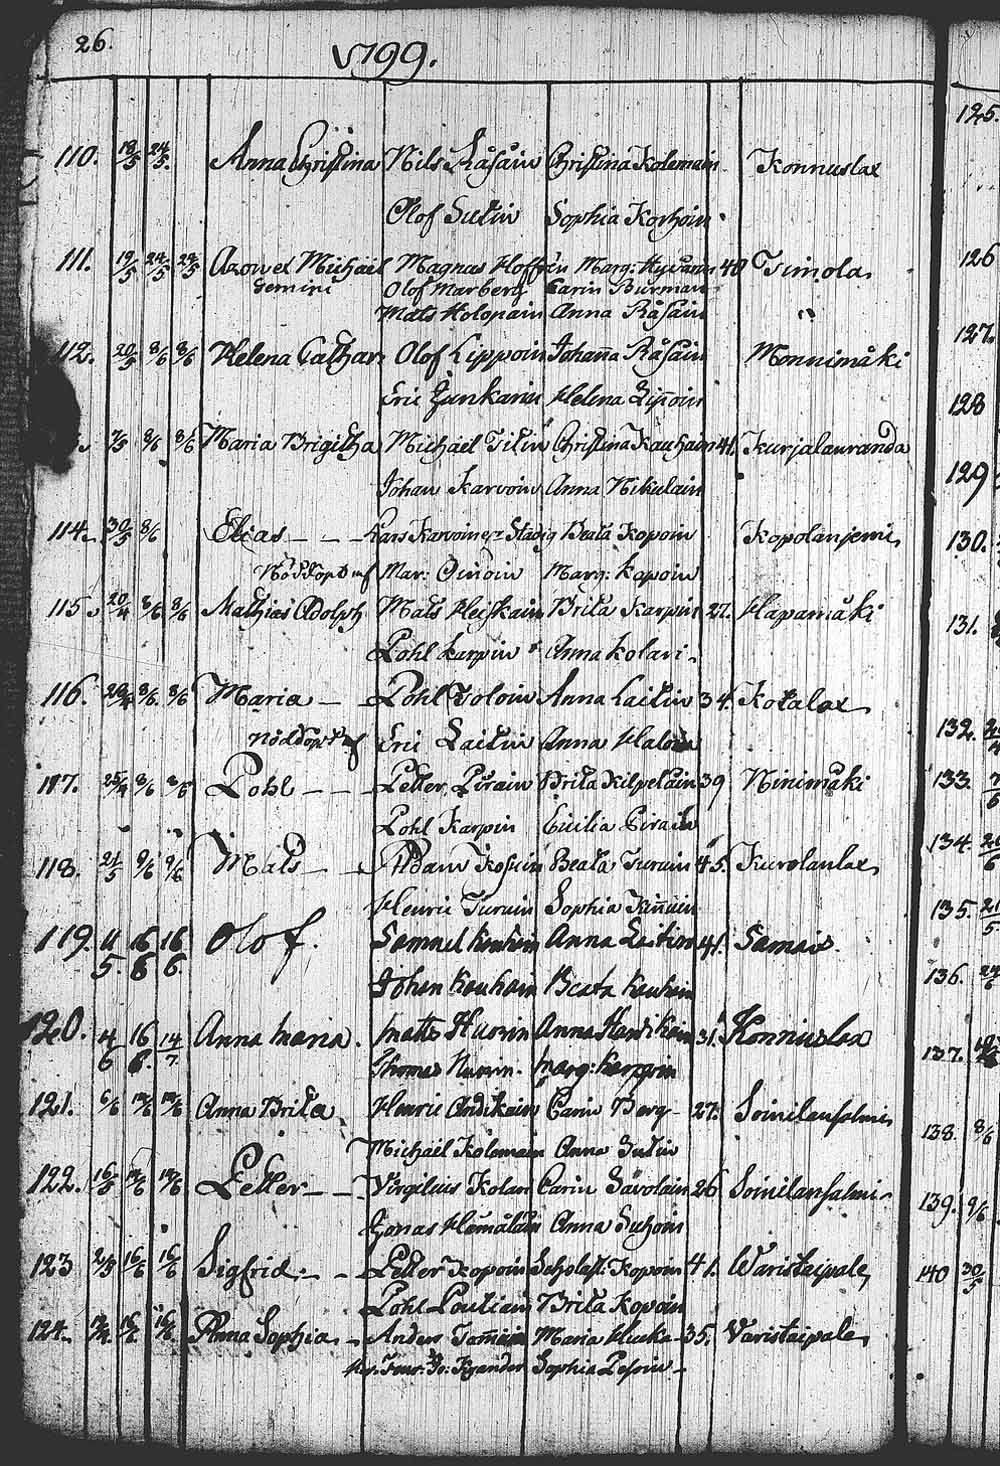 26.
1799.
110. 18/5 24/5. Anna Christina Nils Råsäin Christina Kolemain Konnuslax
Olof Sutin Sophia Korhoin
111. 19/5 24/5 24/5 Michäel Magnus Hoffrén Marg: Hyvärin 40 Timola
Gemini Olof Marberg Carin Burman
Mats Holopain Anna Råsäin "
112. 20/5 8/6 8/6 Helena Cathar: Olof Lippoin Johanna Råsäin Monnimäki
Eric Junkarin Helena Lipoin
8/6 8/6 Maria Brigitha Michael Titin Christina Kauhain 41. Kurjalanranda
Johan Karvoin Anna Nikulain
114. 30/5 8/6 Elias Lars Karvoinen Beata Kopoin Kopolanjemi
Nöddöpt af Mar: Oinoin Marg: Kopoin
115. 20/4 8/6 8/6 Mathias Adolph Mats Heiskain Brita Karpin 27. Hapamäki
Pohl Karpin Anna Kolari
116. 8/6. 8/6 Maria Pohl Toloin Anna Laitin 34. Kotalax
Nöddöpt af Eric Laitin Anna Haloin
117. 25/4 8/6 8/6 Pohl Petter Pirain Brita Kilpeläin 39 Ninimäki
Pohl Karpin Cicilia Pirain
118. 21/5 9/6 9/6 Mats Adam Kosuin Beata Turuin 45. Kurolanlax
Henric Turuin Sophia Kinnuin
119. 11/5. 16/6 16/6. Olof. Samuel Kauhain Anna Laitin 41. Samais
Johan Kauhain Beata Kauhain
120. 4/6 16/6. 14/7. Anna Maria. Matts Huovin Anna Hendrikäin 31. Konnuslax
Thomas Marg: Karppin
121. 6/6 Anna Brita Henric Andikain Carin Berg 27. Soinilansalmi
Michäel Kolemain Anna Sutin
122. 16/5 Petter Virgilius Kolan Carin Sävolain 26 Soinilansalmi
Jonas Hämäläin Anna Suhoin
123 2/3 16/6 16/6 Sigfrid Petter Kopoin Scholast: Kopoin 41. Waristaipale
Pohl Loutiain Brita Kopoin
124. 16/6 16/6 Anna Sophia Anders Tammin Maria Hucka 35. Varistaipale
Jo: Kyander Sophia Pesoin
125.
126
127.
128
129
130.
131.
132.
133.
134.
135. 21/5
136. 24/6
137.
138. 8/6
139. 9/6
140 30/5